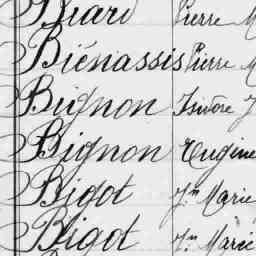 Biard Pierre M
Biénassis Pierre M
Bignon Isidore J
Bignon Eugène
Bigot Jn Marie
Bigot Jn Marie